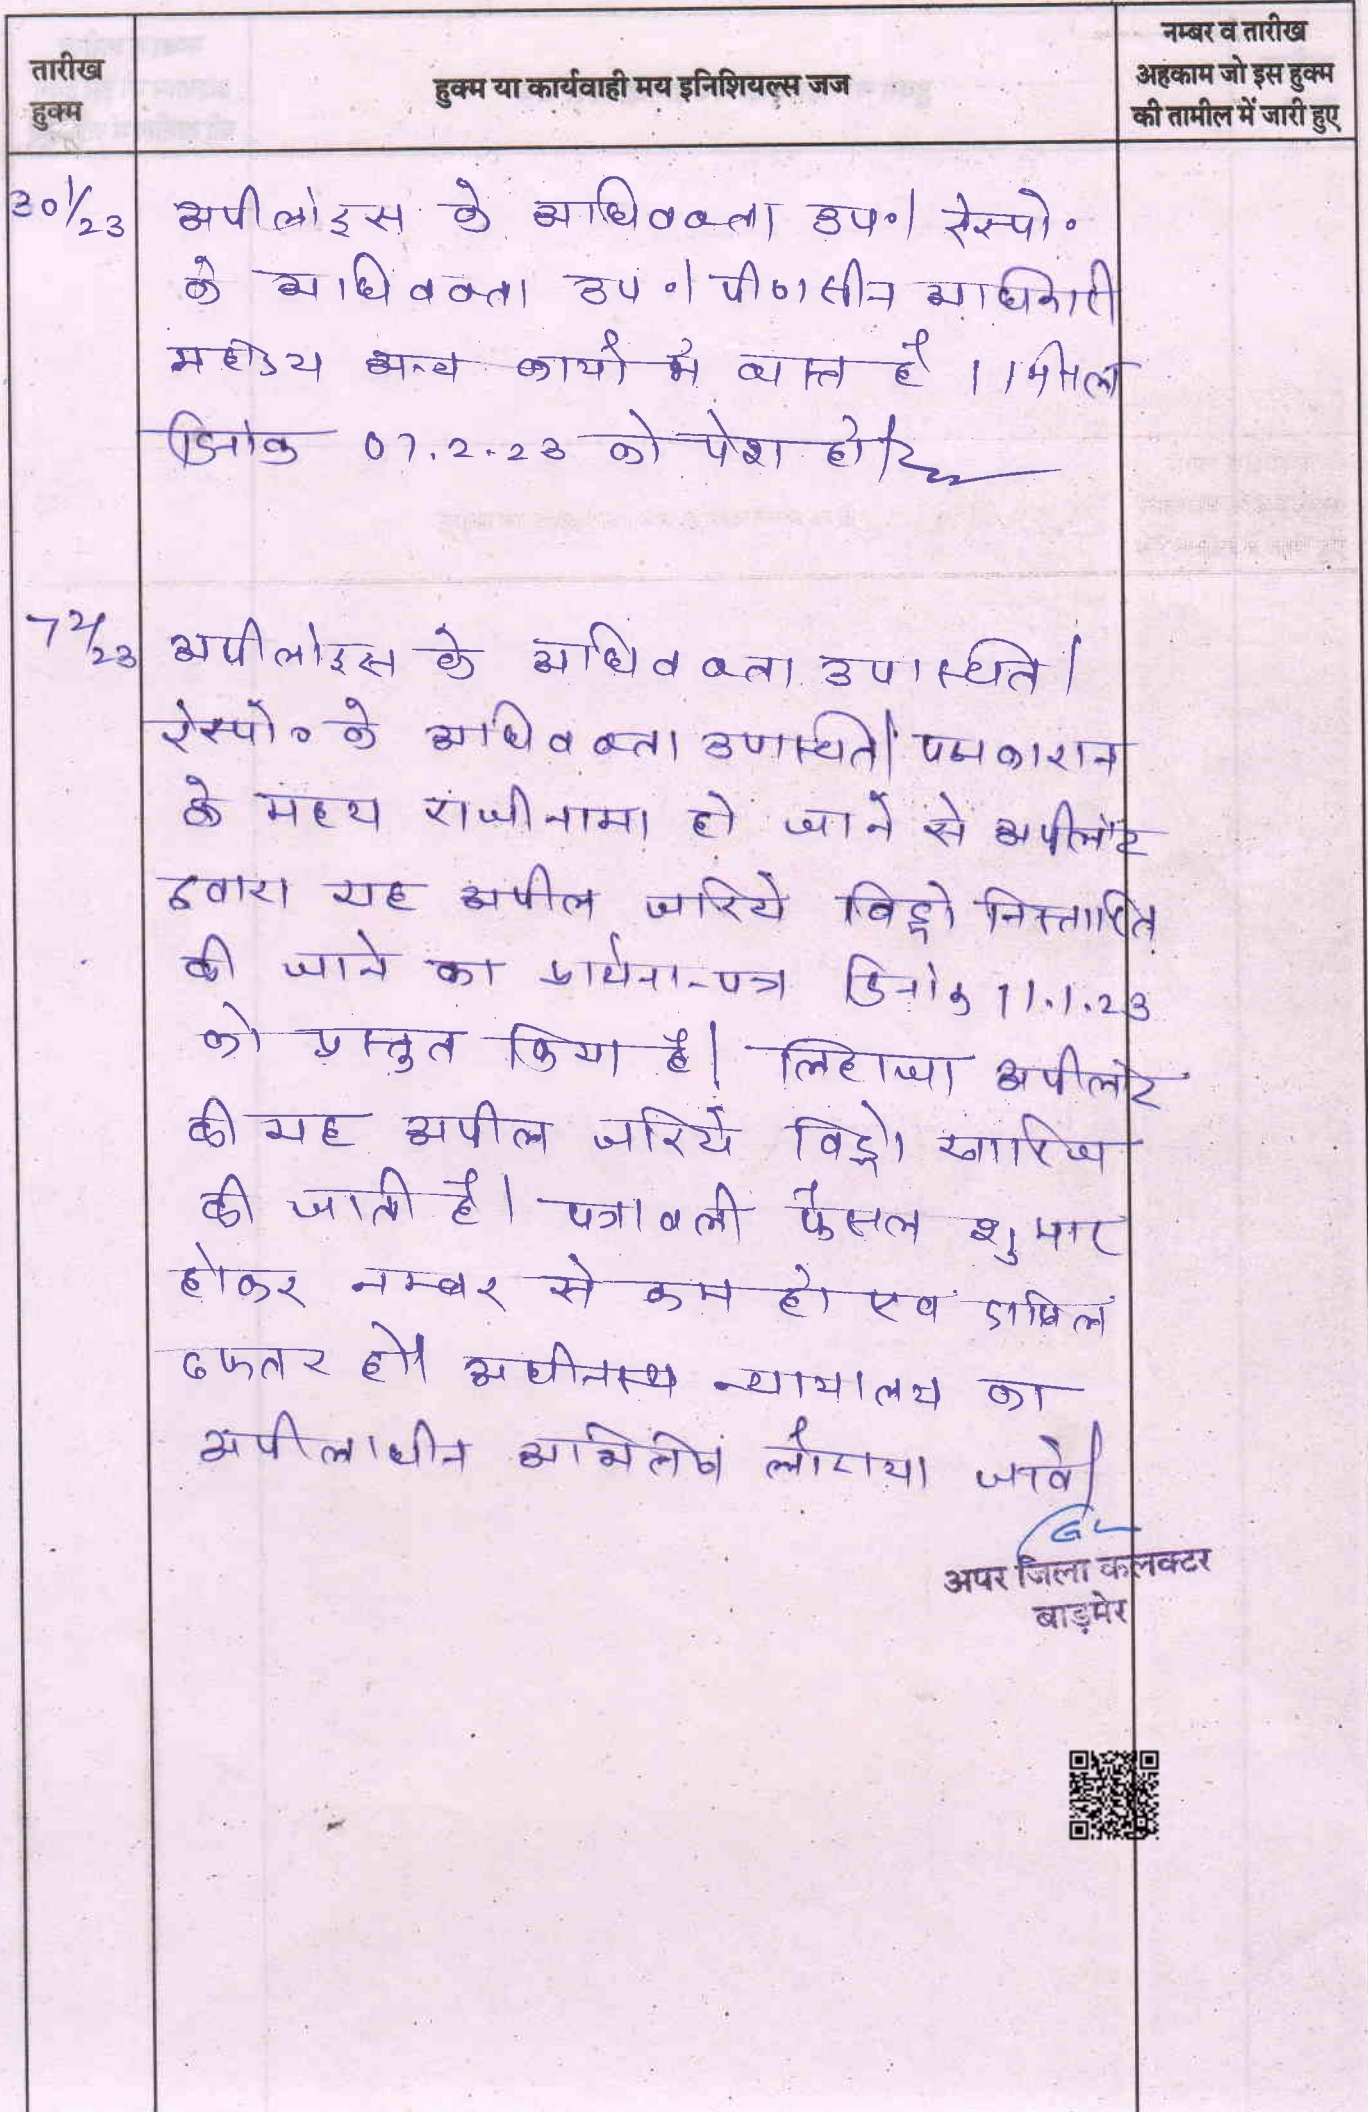 तारीख
हुक्म
हुक्म या कार्यवाही मय इनिशियल्स जज
नम्बर व तारीख
अहकाम जो इस हुक्म
की तामील में जारी हुए
30/1/23
अपीलांइस के अधिवक्ता उप०। रेस्पो०
के अधिवक्ता उप०। पीठासीन अधिकारी
महोदय अन्य कार्यो में व्यस्त है।
दिनांक 07.2.23 को पेश हो।
7/2/23
अपीलांइस के अधिवक्ता उपस्थित।
रेस्पो० के अधिवक्ता उपस्थित। पक्षकारान
के मध्य राजीनामा हो जाने से अपीलांट
द्वारा यह अपील जरिये विड्रो निस्तारित
की जाने का प्रार्थना-पत्र दिनांक 11.1.23
को प्रस्तुत किया है। लिहाजा अपीलांट
की यह अपील जरिये विड्रो खारिज
की जाती है। पत्रावली फैसल शुमार
होकर नम्बर से कम हो एवं दाखिल
दफ्तर हो। अधीनस्थ न्यायालय का
अपीलाधीन अभिलेख लौटाया जावे।
अपर जिला कलक्टर
बाड़मेर